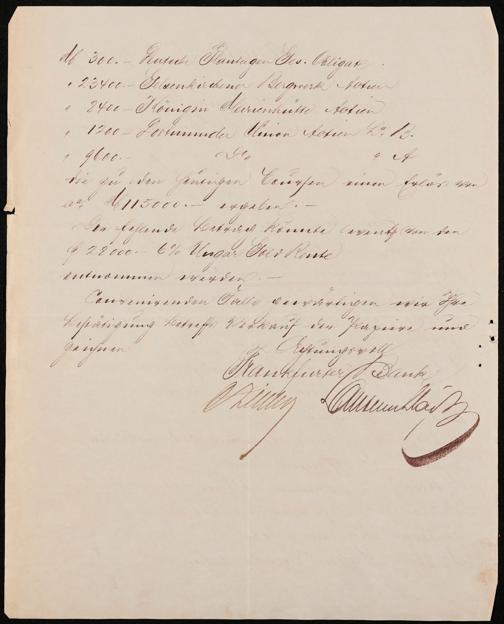 M 300.- Deutsche Plantagen Ges. Obligat.
" 23400 - Gelsenkirchener Bergwerk Actien
" 2400 - Königin Marienhütte Actien
" 1200 - Dortmunder Union Actien La B.
" 9600.- do " A
die zu den heutigen Coursen einen Erlös von
ca. M 115000.- ergeben. -
Der fehlende Betrag könnte event. von den
2 2000.- 6% Ungar Gold Rente
entnommen werden. -
Convenirenden Falls gewärtigen wir Ihre
Bestätigung betreffs Verkauf der Papiere und
zeichnen
Achtungsvoll
Frankfurter Bank